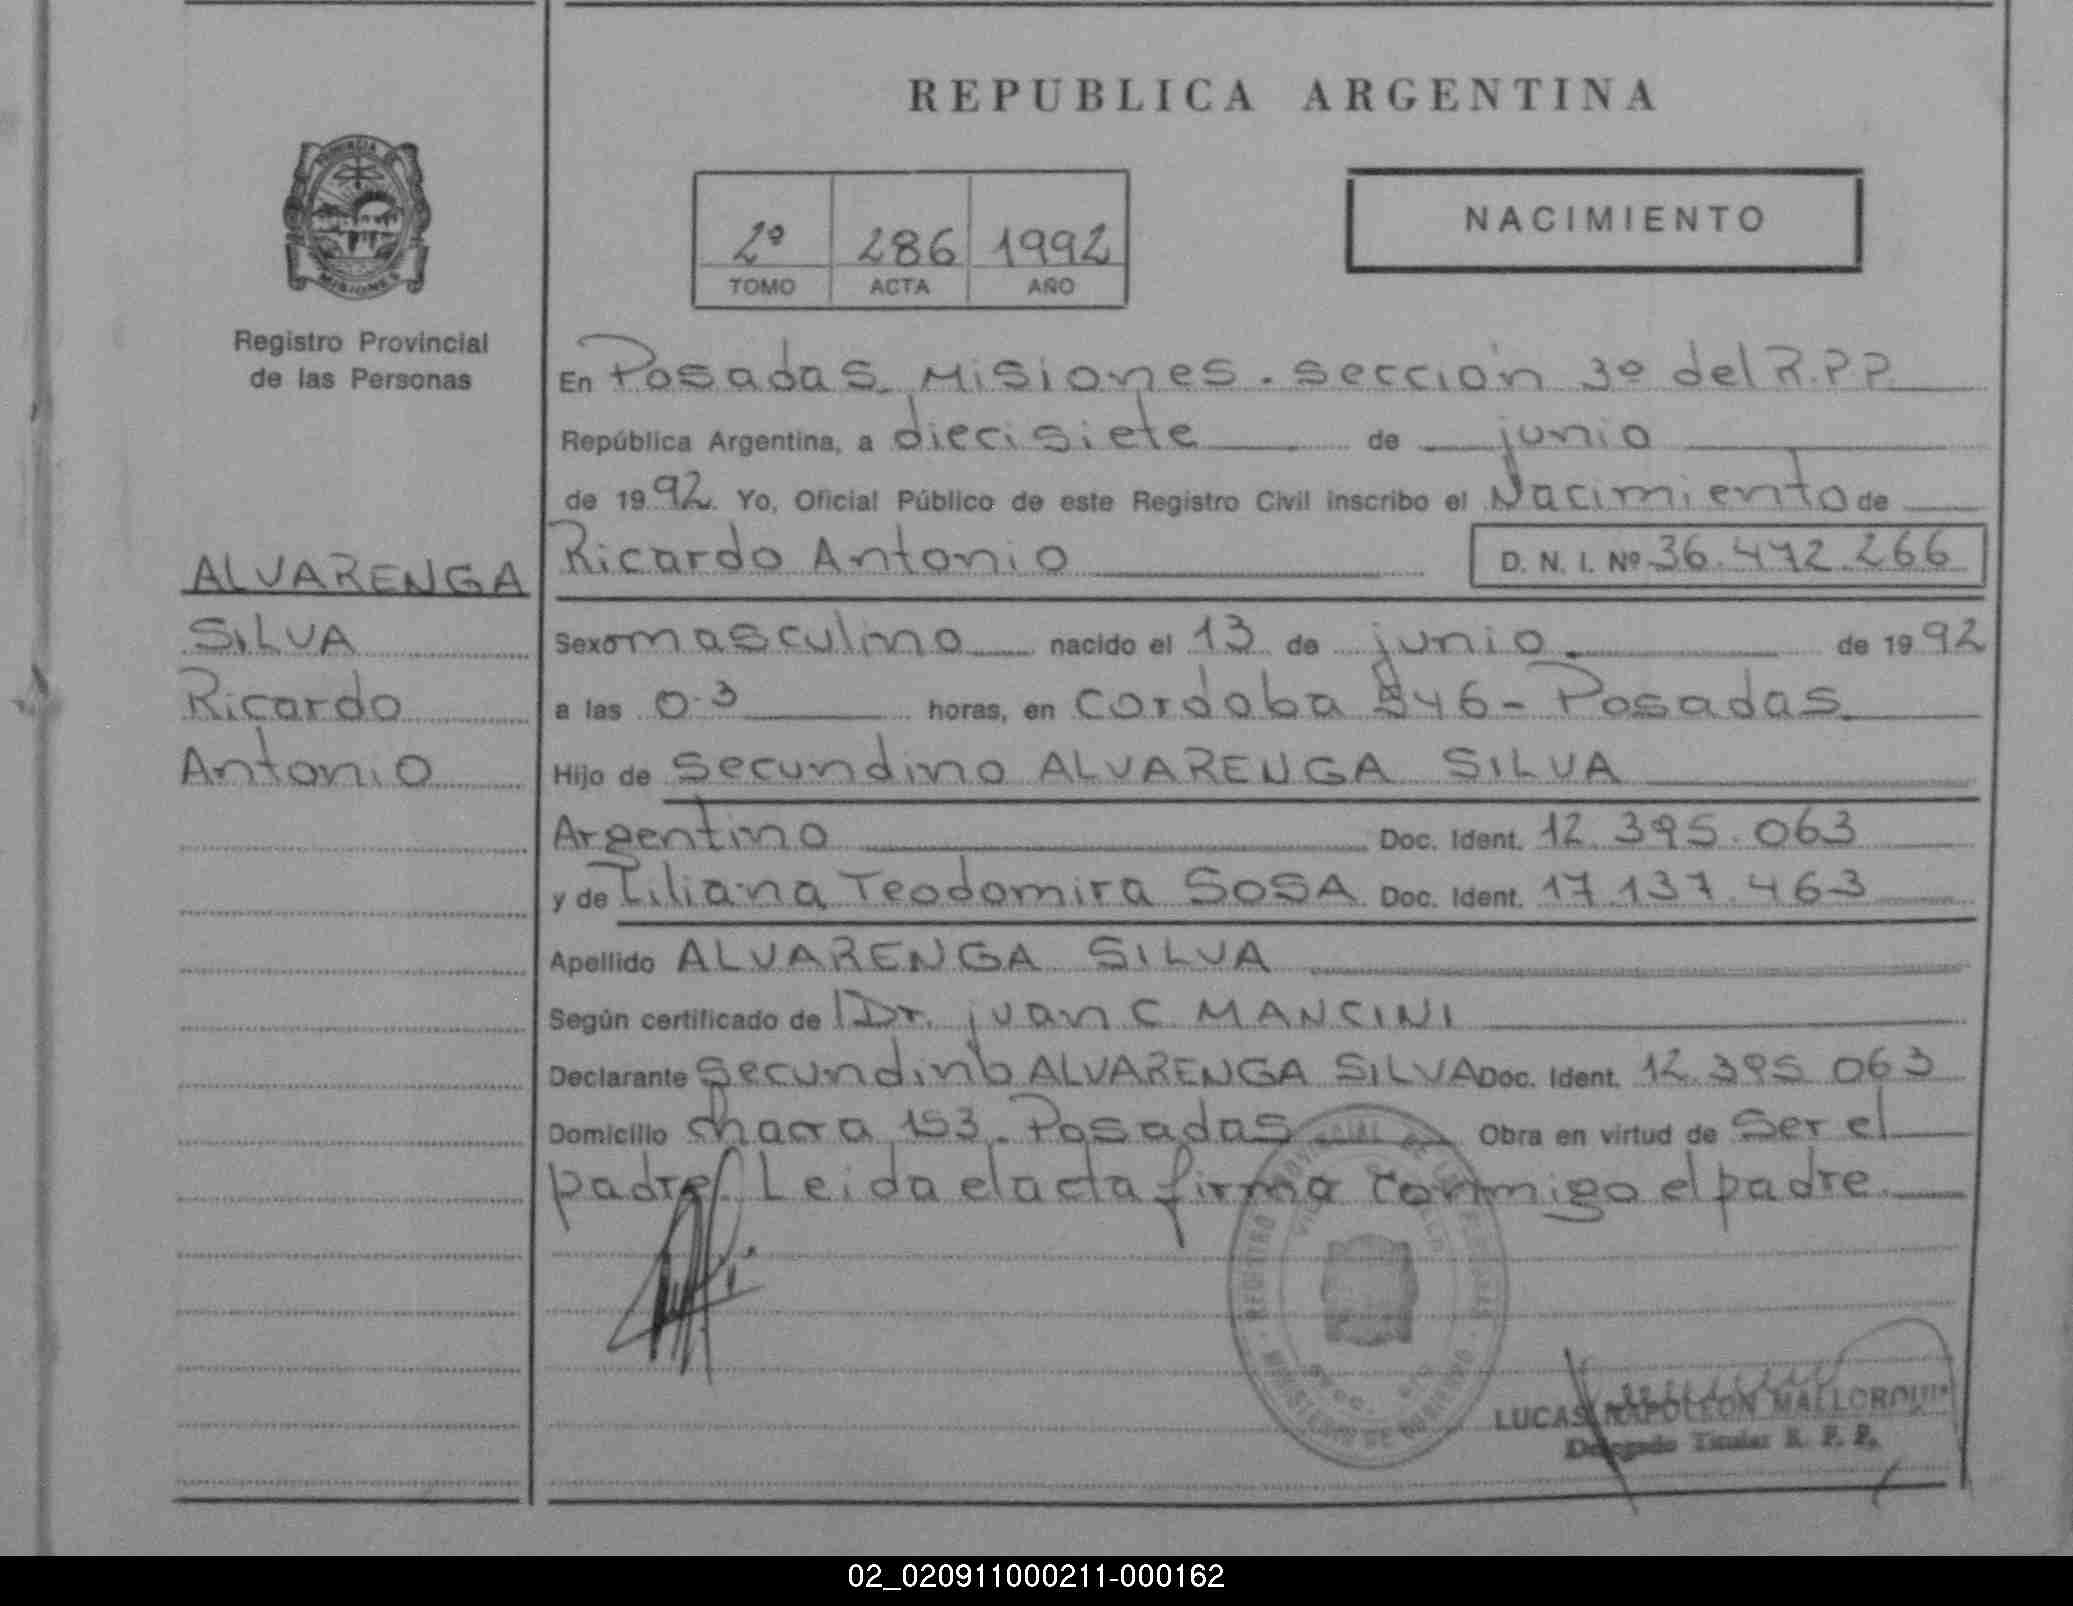 REPUBLICA ARGENTINA
PROVINCIA DE
MISIONES
Registro Provincial
de las Personas
2º 286 1992
TOMO ACTA AÑO
NACIMIENTO
En Posadas Misiones. sección 3º del R.P.P.
República Argentina, a diecisiete de junio
de 1992. Yo, Oficial Público de este Registro Civil inscribo el Nacimiento de
Ricardo Antonio D. N. I. Nº 36.472.266
ALVARENGA
SILVA
Ricardo
Antonio
Sexo masculino nacido el 13 de junio de 1992
a las 03 horas, en cordoba 846 - Posadas
Hijo de Secundino ALVARENGA SILVA
Argentino Doc. Ident. 12.395.063
y de Liliana Teodomira SOSA Doc. Ident. 17.137.463
Apellido ALVARENGA SILVA
Según certificado de Dr. juan C MANCINI
Declarante Secundino ALVARENGA SILVA Doc. Ident. 12.395.063
Domicilio chacra 153. Posadas Obra en virtud de Ser el
padre. Leida el acta firma conmigo el padre.
REGISTRO PROVINCIAL DE LAS PERSONAS
MINISTERIO DE GOBIERNO
LUCAS NAPOLEON MALLORQUIN
Delegado Titular R. P. P.
02_020911000211-000162